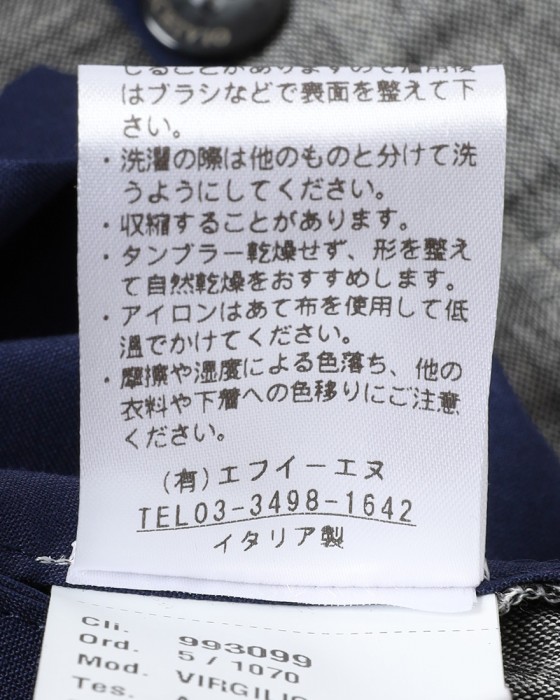 じることがありますので着用後
はブラシなどで表面を整えて下
さい。
・洗濯の際は他のものと分けて洗
うようにしてください。
・収縮することがあります。
・タンブラー乾燥せず、形を整え
て自然乾燥をおすすめします。
・アイロンはあて布を使用して低
温でかけてください。
・摩擦や湿度による色落ち、他の
衣料や下着への色移りにご注意
ください。
(有)エフイーエヌ
TEL03-3498-1642
イタリア製
Cli. 993099
Ord. 5/1070
Mod. VIRGILIO
Tes.